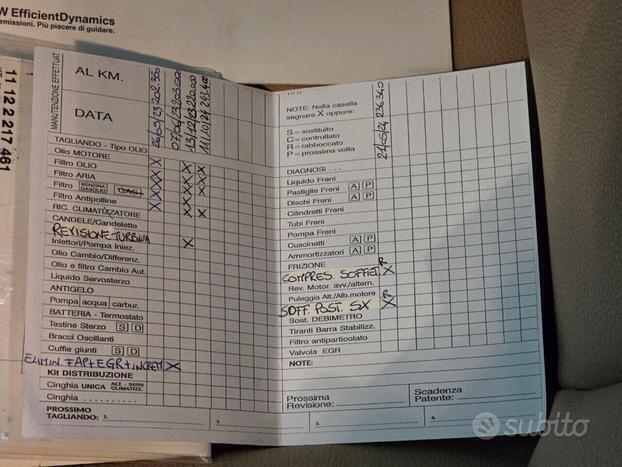 W EfficientDynamics
emissioni. Più piacere di guidare.
11 12 2 217 461
MANUTENZIONE EFFETTUAT.
AL KM.
DATA
26/05/23 202.350
07/06/23 203.000
13/12/23 220.000
11/10/24 243.400
TAGLIANDO - Tipo OLIO
Olio MOTORE
Filtro OLIO X
Filtro ARIA X X X
Filtro BENZINA GASOLIO GAS X X X
Filtro Antipolline X X X
RIC. CLIMATIZZATORE X X
CANDELE/Candelette
REVISIONE TURBINA
Iniettori/Pompa Iniez. X
Olio Cambio/Differenz.
Olio e filtro Cambio Aut.
Liquido Servosterzo
ANTIGELO
Pompa acqua carbur.
BATTERIA - Termostato
Testine Sterzo S D
Bracci Oscillanti
Cuffie giunti S D
ELIMIN. FAP+EGR+ X
Kit DISTRIBUZIONE
Cinghia UNICA ALT. - SERV. CLIMATIZZ.
Cinghia . . . . . . . . . .
PROSSIMO
TAGLIANDO: 1. 2.
NOTE: Nella casella
segnare X oppure:
S = sostituito
C = controllato
R = rabboccato
P = prossima volta
21/05/24 236.340
DIAGNOSI . . .
Liquido Freni
Pastiglie Freni A P
Dischi Freni A P
Cilindretti Freni
Tubi Freni
Pompa Freni
Cuscinetti A P
Ammortizzatori A P
FRIZIONE
COMPRES. SOFFIET. X R
Rev. Motor. avv./altern.
Puleggia Alt./Alb.motore
SOFF. POST. SX X R
Sost. DEBIMETRO
Tiranti Barra Stabilizz.
Filtro antiparticolato
Valvola EGR
NOTE:
Prossima
Revisione:
Scadenza
Patente:
3. 4.
subito